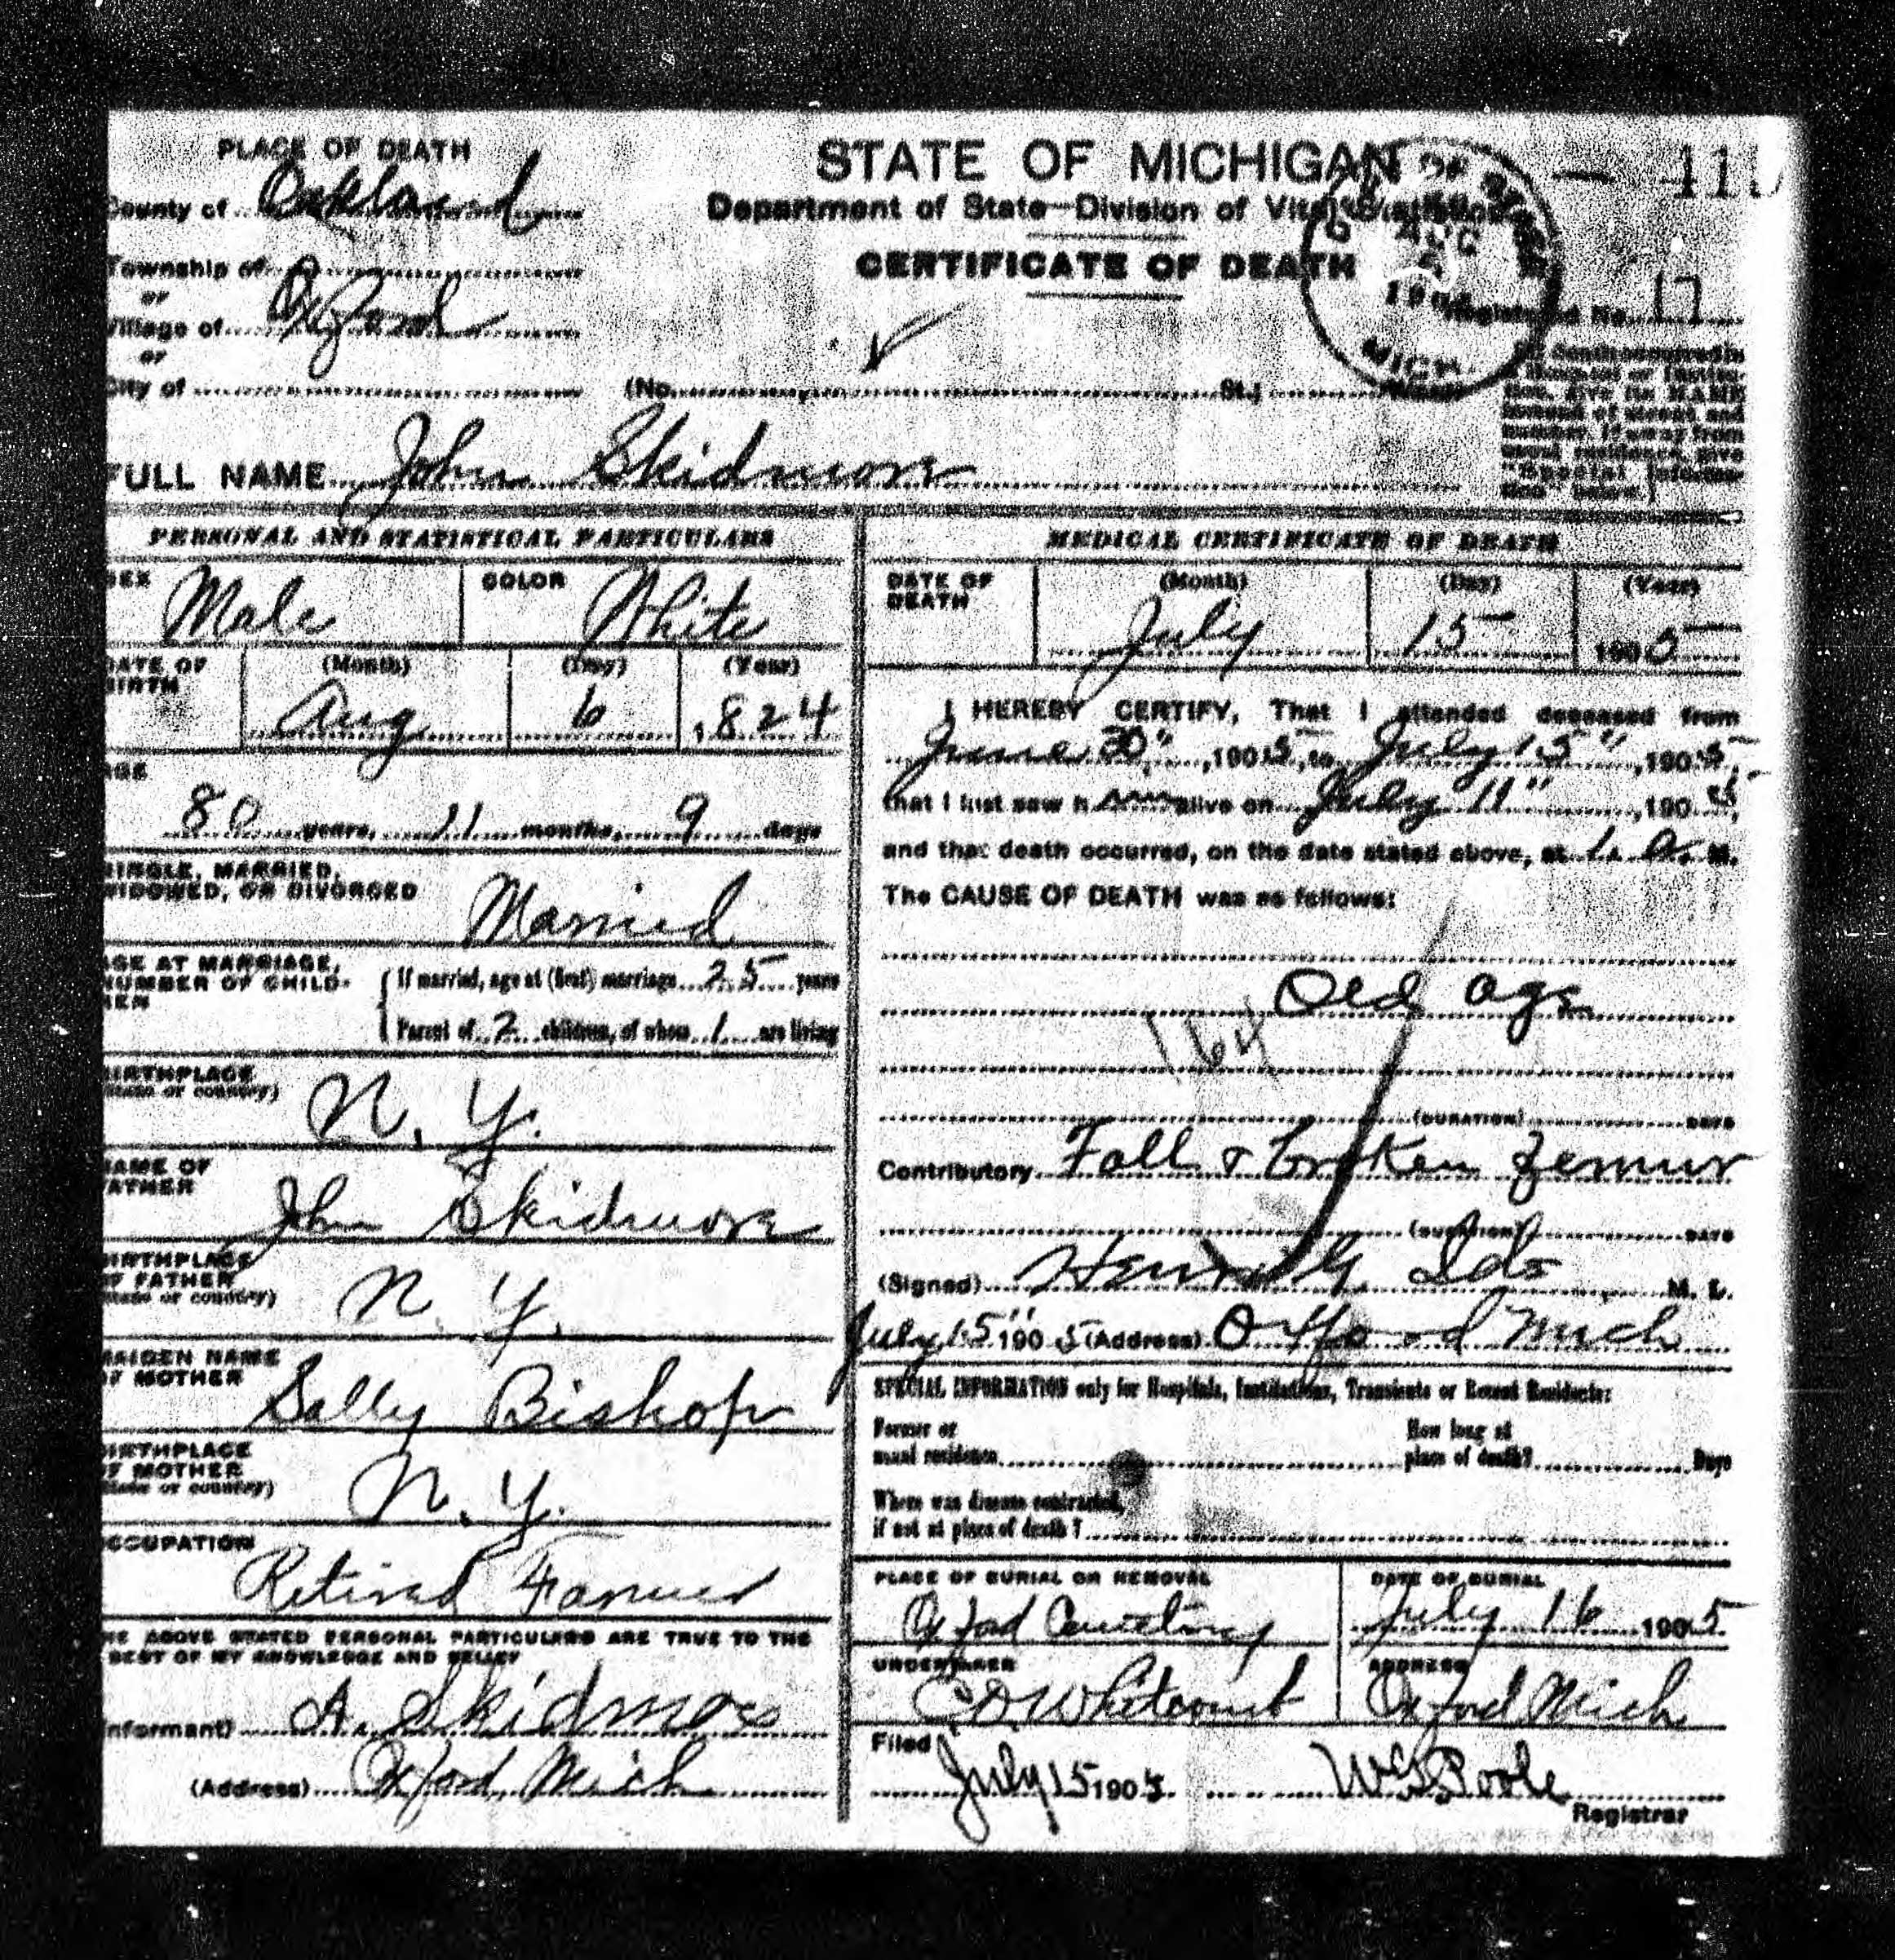 PLACE OF DEATH
County of Oakland
Township of
or
Village of Oxford
or
City of
STATE OF MICHIGAN
Department of State—Division of Vital Statistics
CERTIFICATE OF DEATH
AUG
5
MICH.
Registered No. 17
(No. St.; Ward)
[If death occurred in
a Hospital or Institu-
tion, give its NAME
instead of street and
number. If away from
usual residence, give
"Special Informa-
tion" below.]
FULL NAME John Skidmore
PERSONAL AND STATISTICAL PARTICULARS
SEX Male COLOR White
DATE OF BIRTH (Month) Aug (Day) 6 (Year) 1824
AGE
80 years, 11 months, 9 days
SINGLE, MARRIED,
WIDOWED, OR DIVORCED Married
AGE AT MARRIAGE,
NUMBER OF CHILD-
REN
If married, age at (first) marriage 25 years
Parent of 2 children, of whom 1 are living
BIRTHPLACE
(State or country) N. Y.
NAME OF
FATHER John Skidmore
BIRTHPLACE
OF FATHER
(State or country) N. Y.
MAIDEN NAME
OF MOTHER Sally Bishop
BIRTHPLACE
OF MOTHER
(State or country) N. Y.
OCCUPATION
Retired Farmer
THE ABOVE STATED PERSONAL PARTICULARS ARE TRUE TO THE
BEST OF MY KNOWLEDGE AND BELIEF
(Informant) A. Skidmore
(Address) Oxford Mich
MEDICAL CERTIFICATE OF DEATH
DATE OF DEATH (Month) July (Day) 15 (Year) 1905
I HEREBY CERTIFY, That I attended deceased from
June 30", 1905, to July 15", 1905,
that I last saw him alive on July 11", 1905,
and that death occurred, on the date stated above, at 1. A. M.
The CAUSE OF DEATH was as follows:
Old age
164
(DURATION) DAYS
Contributory Fall & Broken Femur
(DURATION) DAYS
(Signed) M. D.
July 15" 1905 (Address) Oxford Mich
SPECIAL INFORMATION only for Hospitals, Institutions, Transients or Recent Residents:
Former or
usual residence
How long at
place of death? Days
Where was disease contracted,
if not at place of death?
PLACE OF BURIAL OR REMOVAL
Oxford Cemetery
DATE OF BURIAL
July 16 1905
UNDERTAKER
C D Whitcomb
ADDRESS
Oxford Mich
Filed
July 15 1905 Poole
Registrar